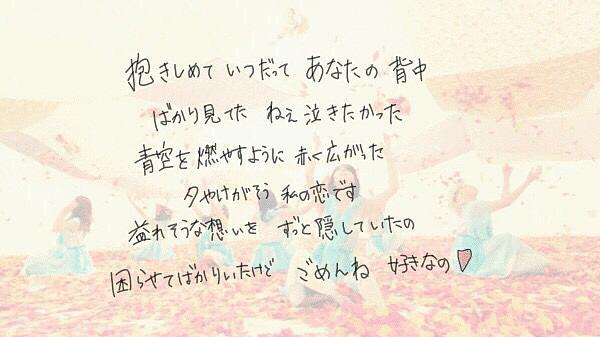 抱きしめて いつだって あなたの 背中
ばかり見てた ねぇ 泣きたかった
青空を 燃やすように 赤く広がった
夕やけがそう 私の恋です
溢れそうな想いを ずっと隠していたの
困らせてばかりいたけど ごめんね 好きなの♡